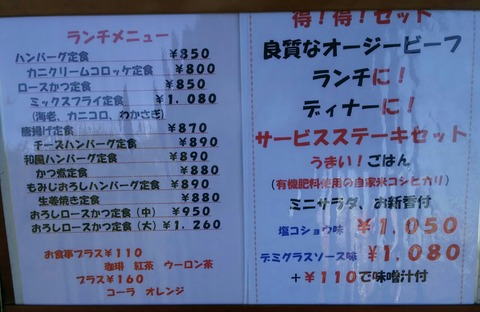 ランチメニュー
ハンバーグ定食 ¥850
カニクリームコロッケ定食 ¥800
ロースかつ定食 ¥850
ミックスフライ定食 ¥1.080
(海老、カニコロ、わかさぎ)
唐揚げ定食 ¥870
チーズハンバーグ定食 ¥890
和風ハンバーグ定食 ¥890
かつ煮定食 ¥880
もみじおろしハンバーグ定食 ¥890
生姜焼き定食 ¥880
おろしロースかつ定食(中) ¥950
おろしロースかつ定食(大) ¥1.260
お食事プラス¥110
珈琲 紅茶 ウーロン茶
プラス¥160
コーラ オレンジ
得!得!セット
良質なオージービーフ
ランチに!
ディナーに!
サービスステーキセット
うまい!ごはん
(有機肥料使用の自家米コシヒカリ)
ミニサラダ、お新香付
塩コショウ味 ¥1.050
デミグラスソース味 ¥1.080
+¥110で味噌汁付